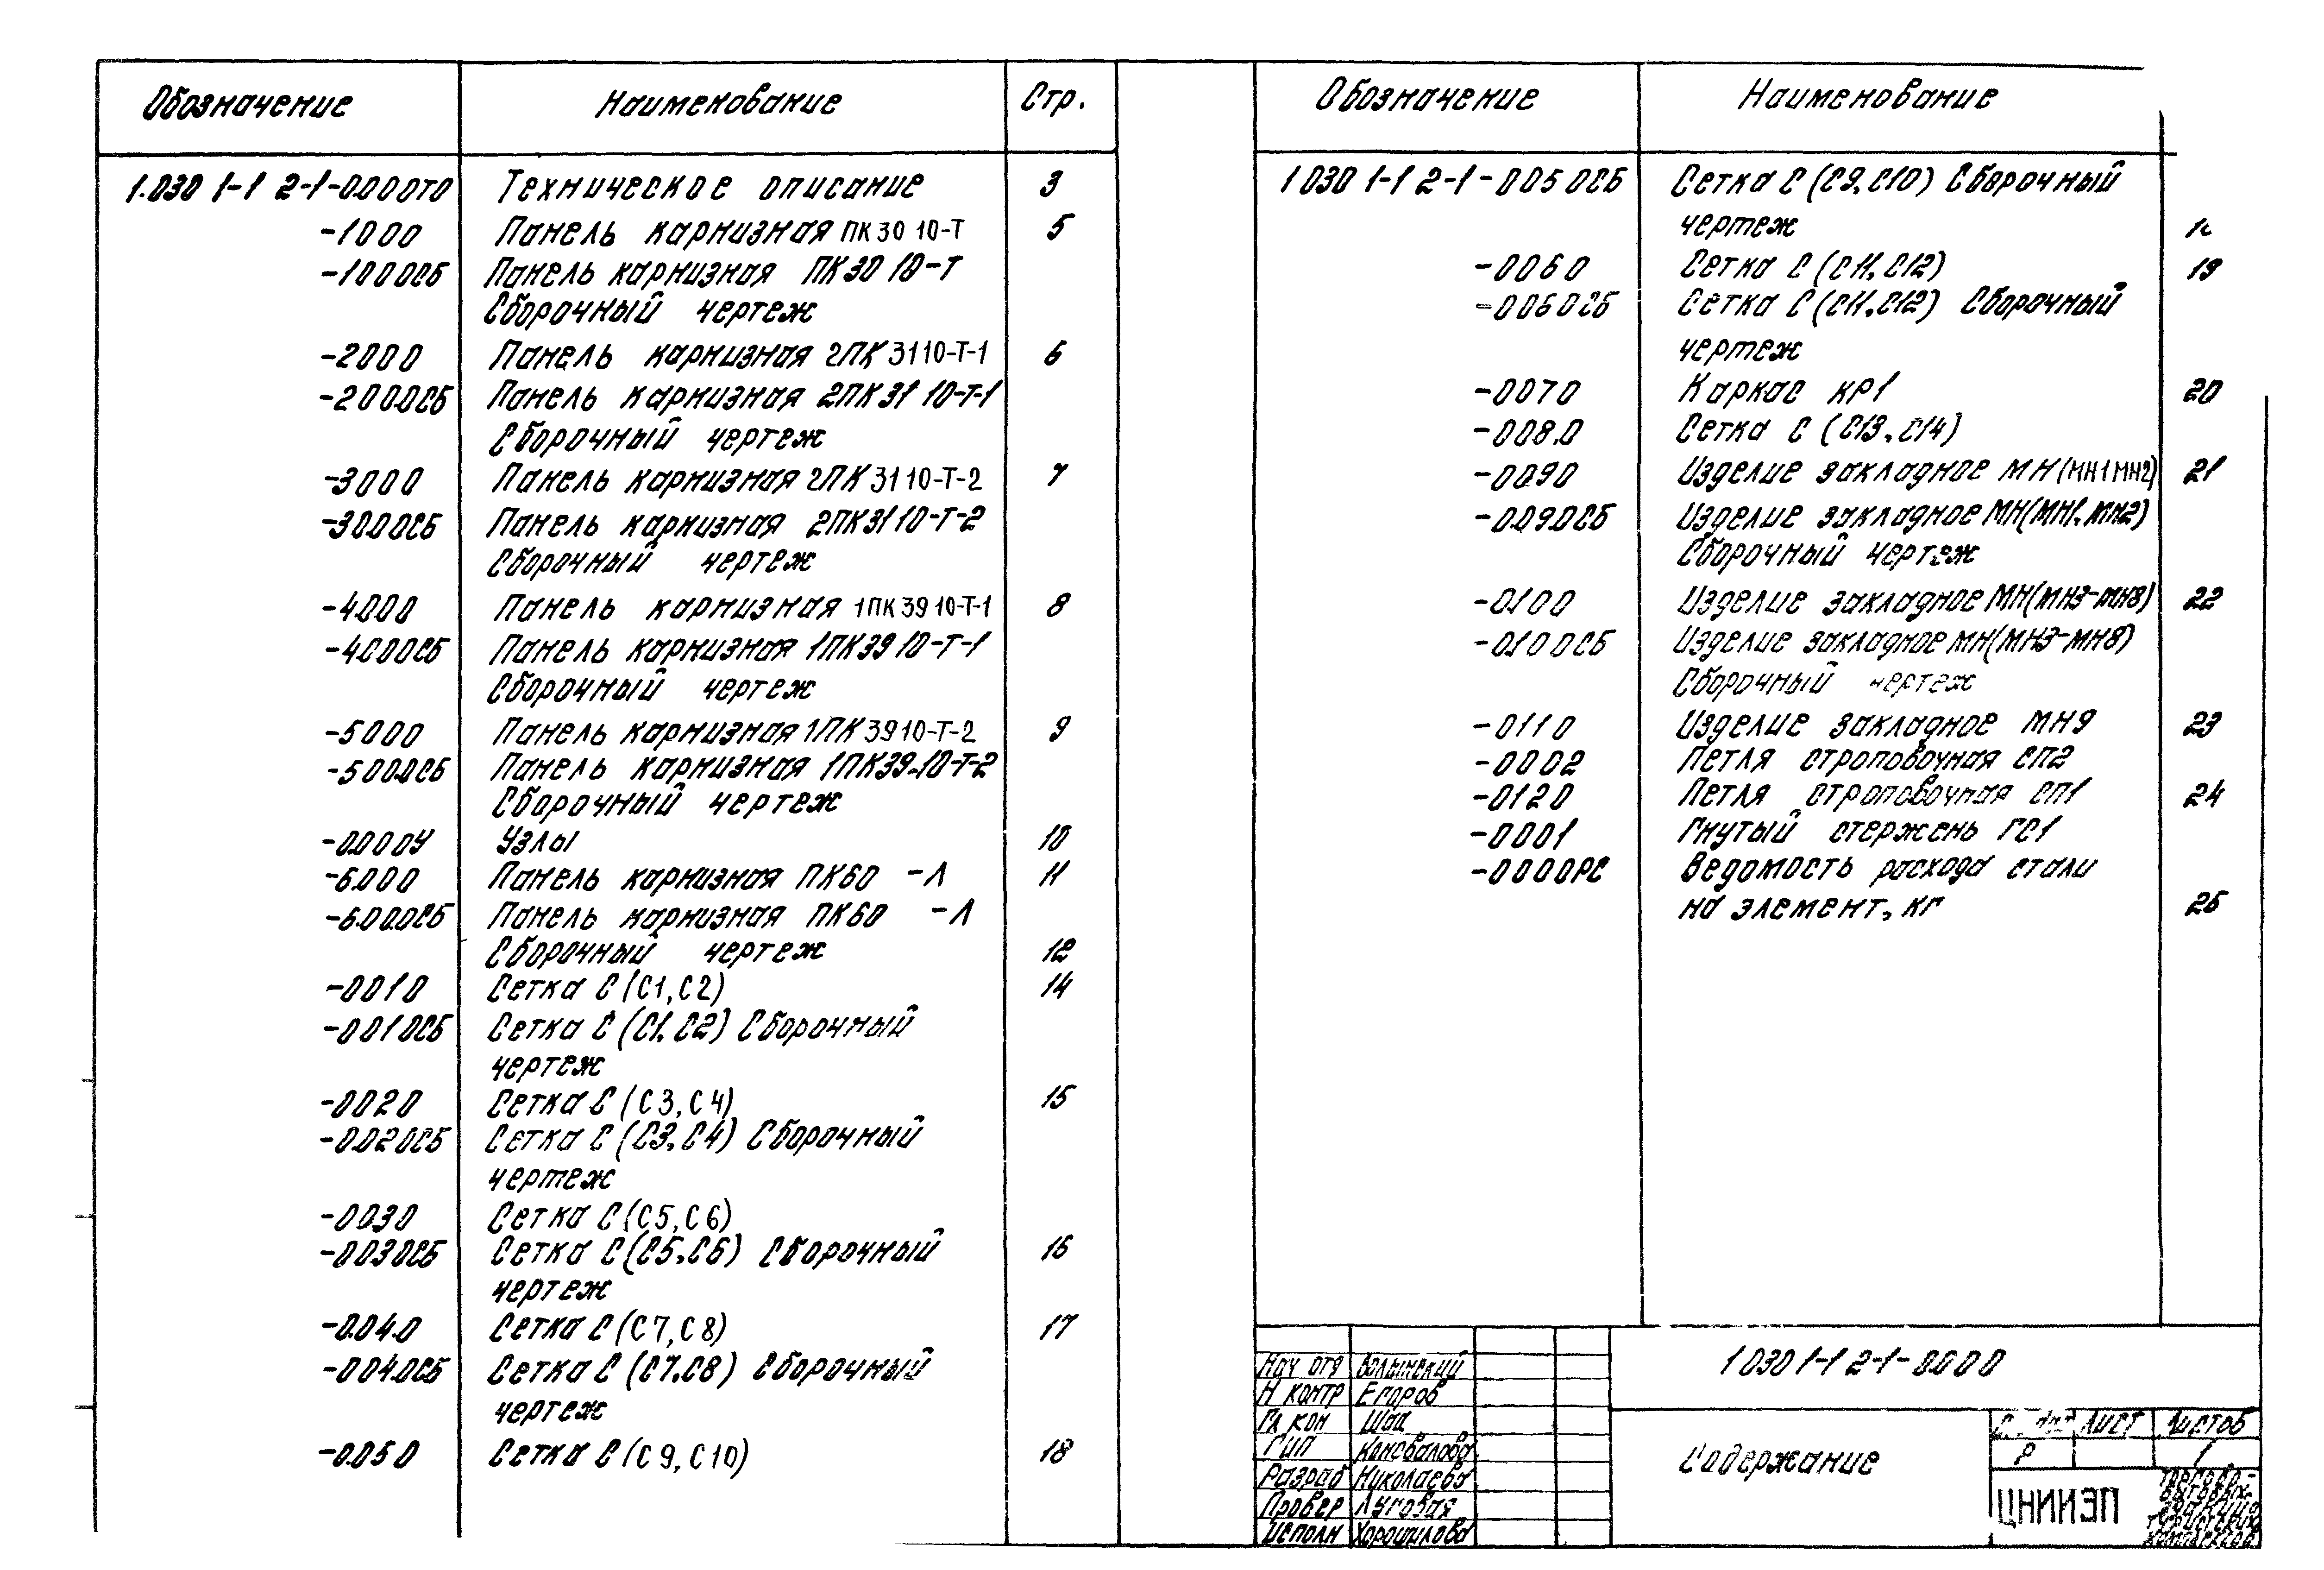 Обозначение Наименование Стр.
1.030 1-1 2-1-0.0.00ТО Техническое описание 3
-1000 Панель карнизная ПК30 10-Т 5
-1000СБ Панель карнизная ПК30 10-Т
Сборочный чертеж
-2000 Панель карнизная 2ПК 3110-Т-1 6
-200.0СБ Панель карнизная 2ПК31 10-Т-1
Сборочный чертеж
-3000 Панель карнизная 2ПК 3110-Т-2 7
-30.00СБ Панель карнизная 2ПК31 10-Т-2
Сборочный чертеж
-4.000 Панель карнизная 1ПК 39 10-Т-1 8
-4.000СБ Панель карнизная 1ПК39 10-Т-1
Сборочный чертеж
-5000 Панель карнизная 1ПК 3910-Т-2 9
-500.0СБ Панель карнизная 1ПК39.10-Т-2
Сборочный чертеж
-0.000У Узлы 10
-6.000 Панель карнизная ПК60 -Л 11
-6.0.0.0СБ Панель карнизная ПК60 -Л
Сборочный чертеж 12
-0010 Сетка С (С1, С2) 14
-0010СБ Сетка С (С1, С2) Сборочный
чертеж
-0020 Сетка С (С3, С4) 15
-0.020СБ Сетка С (С3, С4) Сборочный
чертеж
-00.30 Сетка С (С5, С6)
-00.30СБ Сетка С (С5, С6) Сборочный 16
чертеж
-0.04.0 Сетка С (С7, С8) 17
-004.0СБ Сетка С (С7, С8) Сборочный
чертеж
-0.050 Сетка С (С9, С10) 18
Обозначение Наименование
1 030 1-1 2-1-005 0СБ Сетка С (С9, С10) Сборочный
чертеж
-0060 Сетка С (С11, С12) 19
-0060СБ Сетка С (С11, С12) Сборочный
чертеж
-0070 Каркас КР1 20
-008.0 Сетка С (С13, С14)
-00.90 Изделие закладное МН (МН1 МН2) 21
-0.09.0СБ Изделие закладное МН(МН1, МН2)
Сборочный чертеж
-0.100 Изделие закладное МН(МН3-МН8) 22
-0.100СБ Изделие закладное МН(МН3-МН8)
Сборочный чертеж
-0110 Изделие закладное МН9 23
-0002 Петля строповочная СП2
-0120 Петля строповочная СП1 24
-0001 Гнутый стержень ГС1
-0000РС Ведомость расхода стали
на элемент, кг 25
Нач отд Волынский
Н контр Егоров
Гл кон Шац
ГИП Коновалова
Разраб Николаева
Провер Луговая
Исполн Хорошилова
1 030 1-1 2-1-0.0.0 0
Содержание
Лист Листов
Р 1
ЦНИИЭП